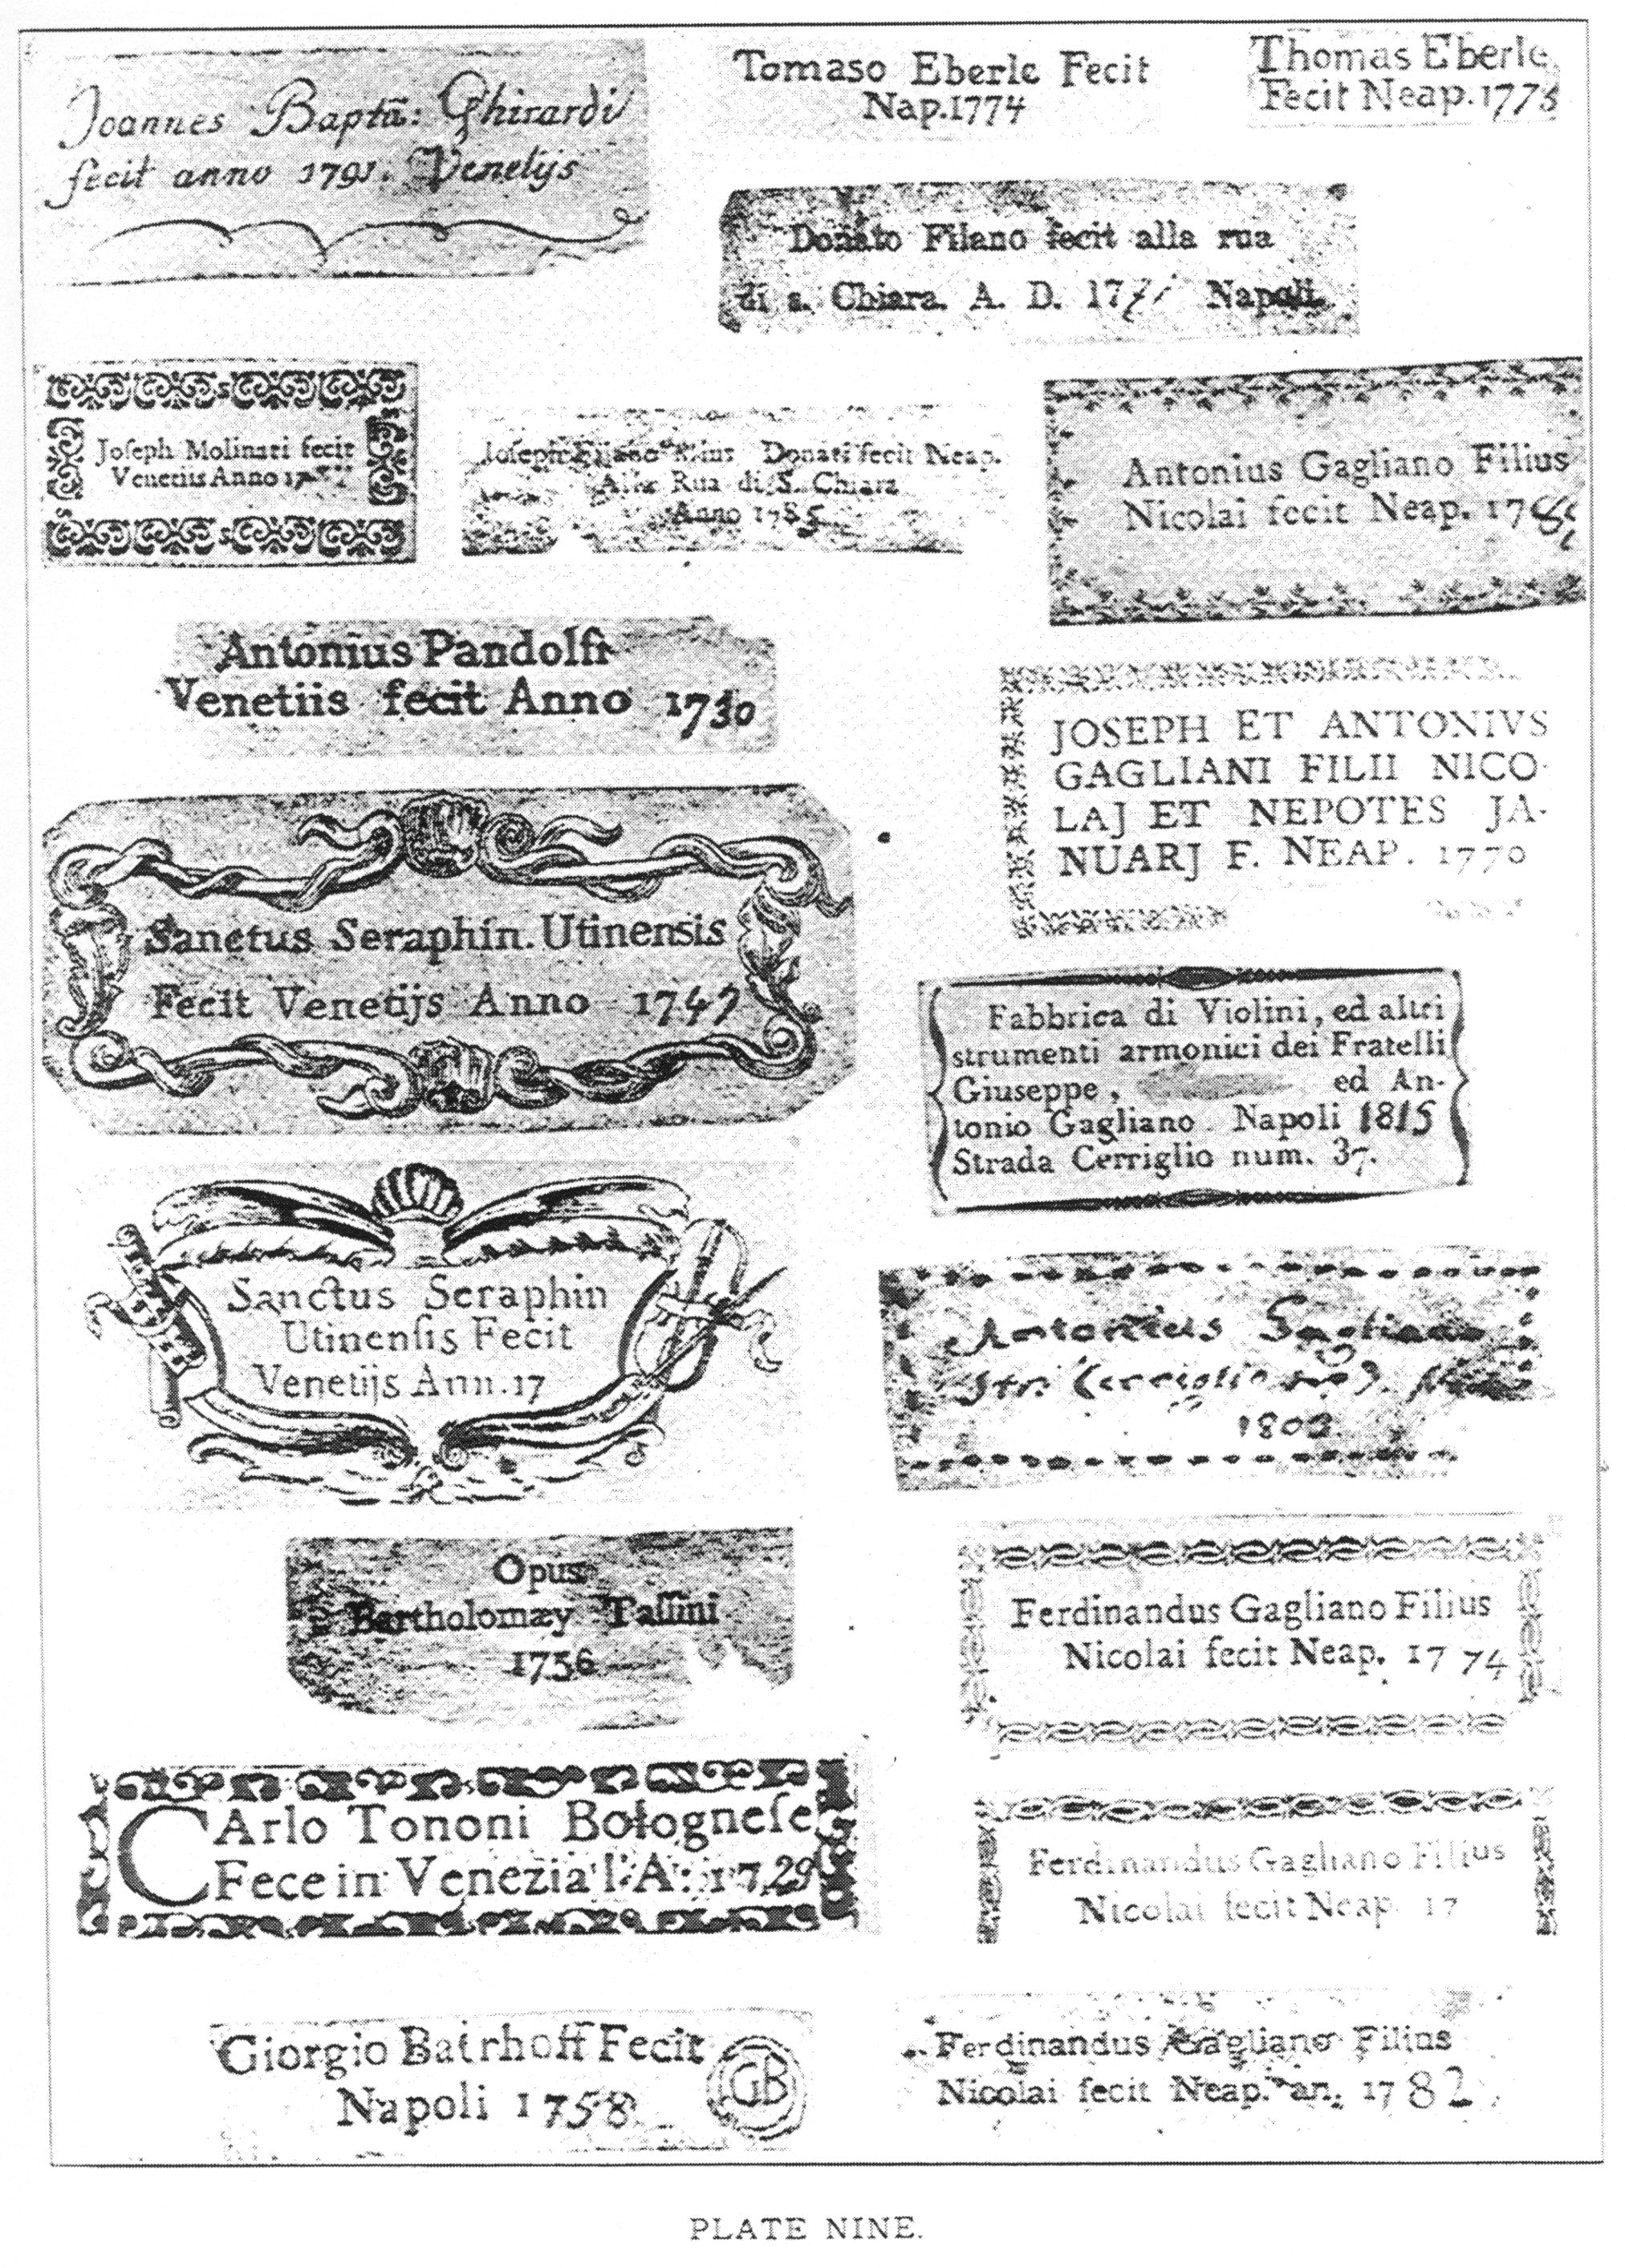 Joannes Baptã: Ghirardi
fecit anno 1791. Venetijs
Tomaso Eberle Fecit
Nap. 1774
Thomas Eberle
Fecit Neap. 177
Donato Filano fecit alla rua
di s. Chiara. A. D. 1771 Napoli.
Joſeph Molinari fecit
Venetiis Anno 17
Joſeph Filano Filius Donati fecit Neap.
Alla Rua di S. Chiara
Anno 1785
Antonius Gagliano Filius
Nicolai fecit Neap. 17
Antonius Pandolfi
Venetiis fecit Anno 1730
JOSEPH ET ANTONIVS
GAGLIANI FILII NICO-
LAJ ET NEPOTES JA-
NUARJ F. NEAP. 1770
Sanctus Seraphin. Utinensis
Fecit Venetijs Anno 1747
Fabbrica di Violini, ed altri
strumenti armonici dei Fratelli
Giuseppe, ed An-
tonio Gagliano. Napoli 1815
Strada Cerriglio num. 37.
Sanctus Seraphin
Utinenſis Fecit
Venetijs Ann. 17
Antonius Gagliano
Str. Cerriglio
1803
Opus
Bartholomæy Taſſini
1756
Ferdinandus Gagliano Filius
Nicolai fecit Neap. 1774
CArlo Tononi Bologneſe
Fece in Venezia l'A: 1729
Ferdinandus Gagliano Filius
Nicolai fecit Neap. 17
Giorgio Bairhoff Fecit
Napoli 1758
GB
Ferdinandus Gagliano Filius
Nicolai fecit Neap. an. 1782
PLATE NINE.